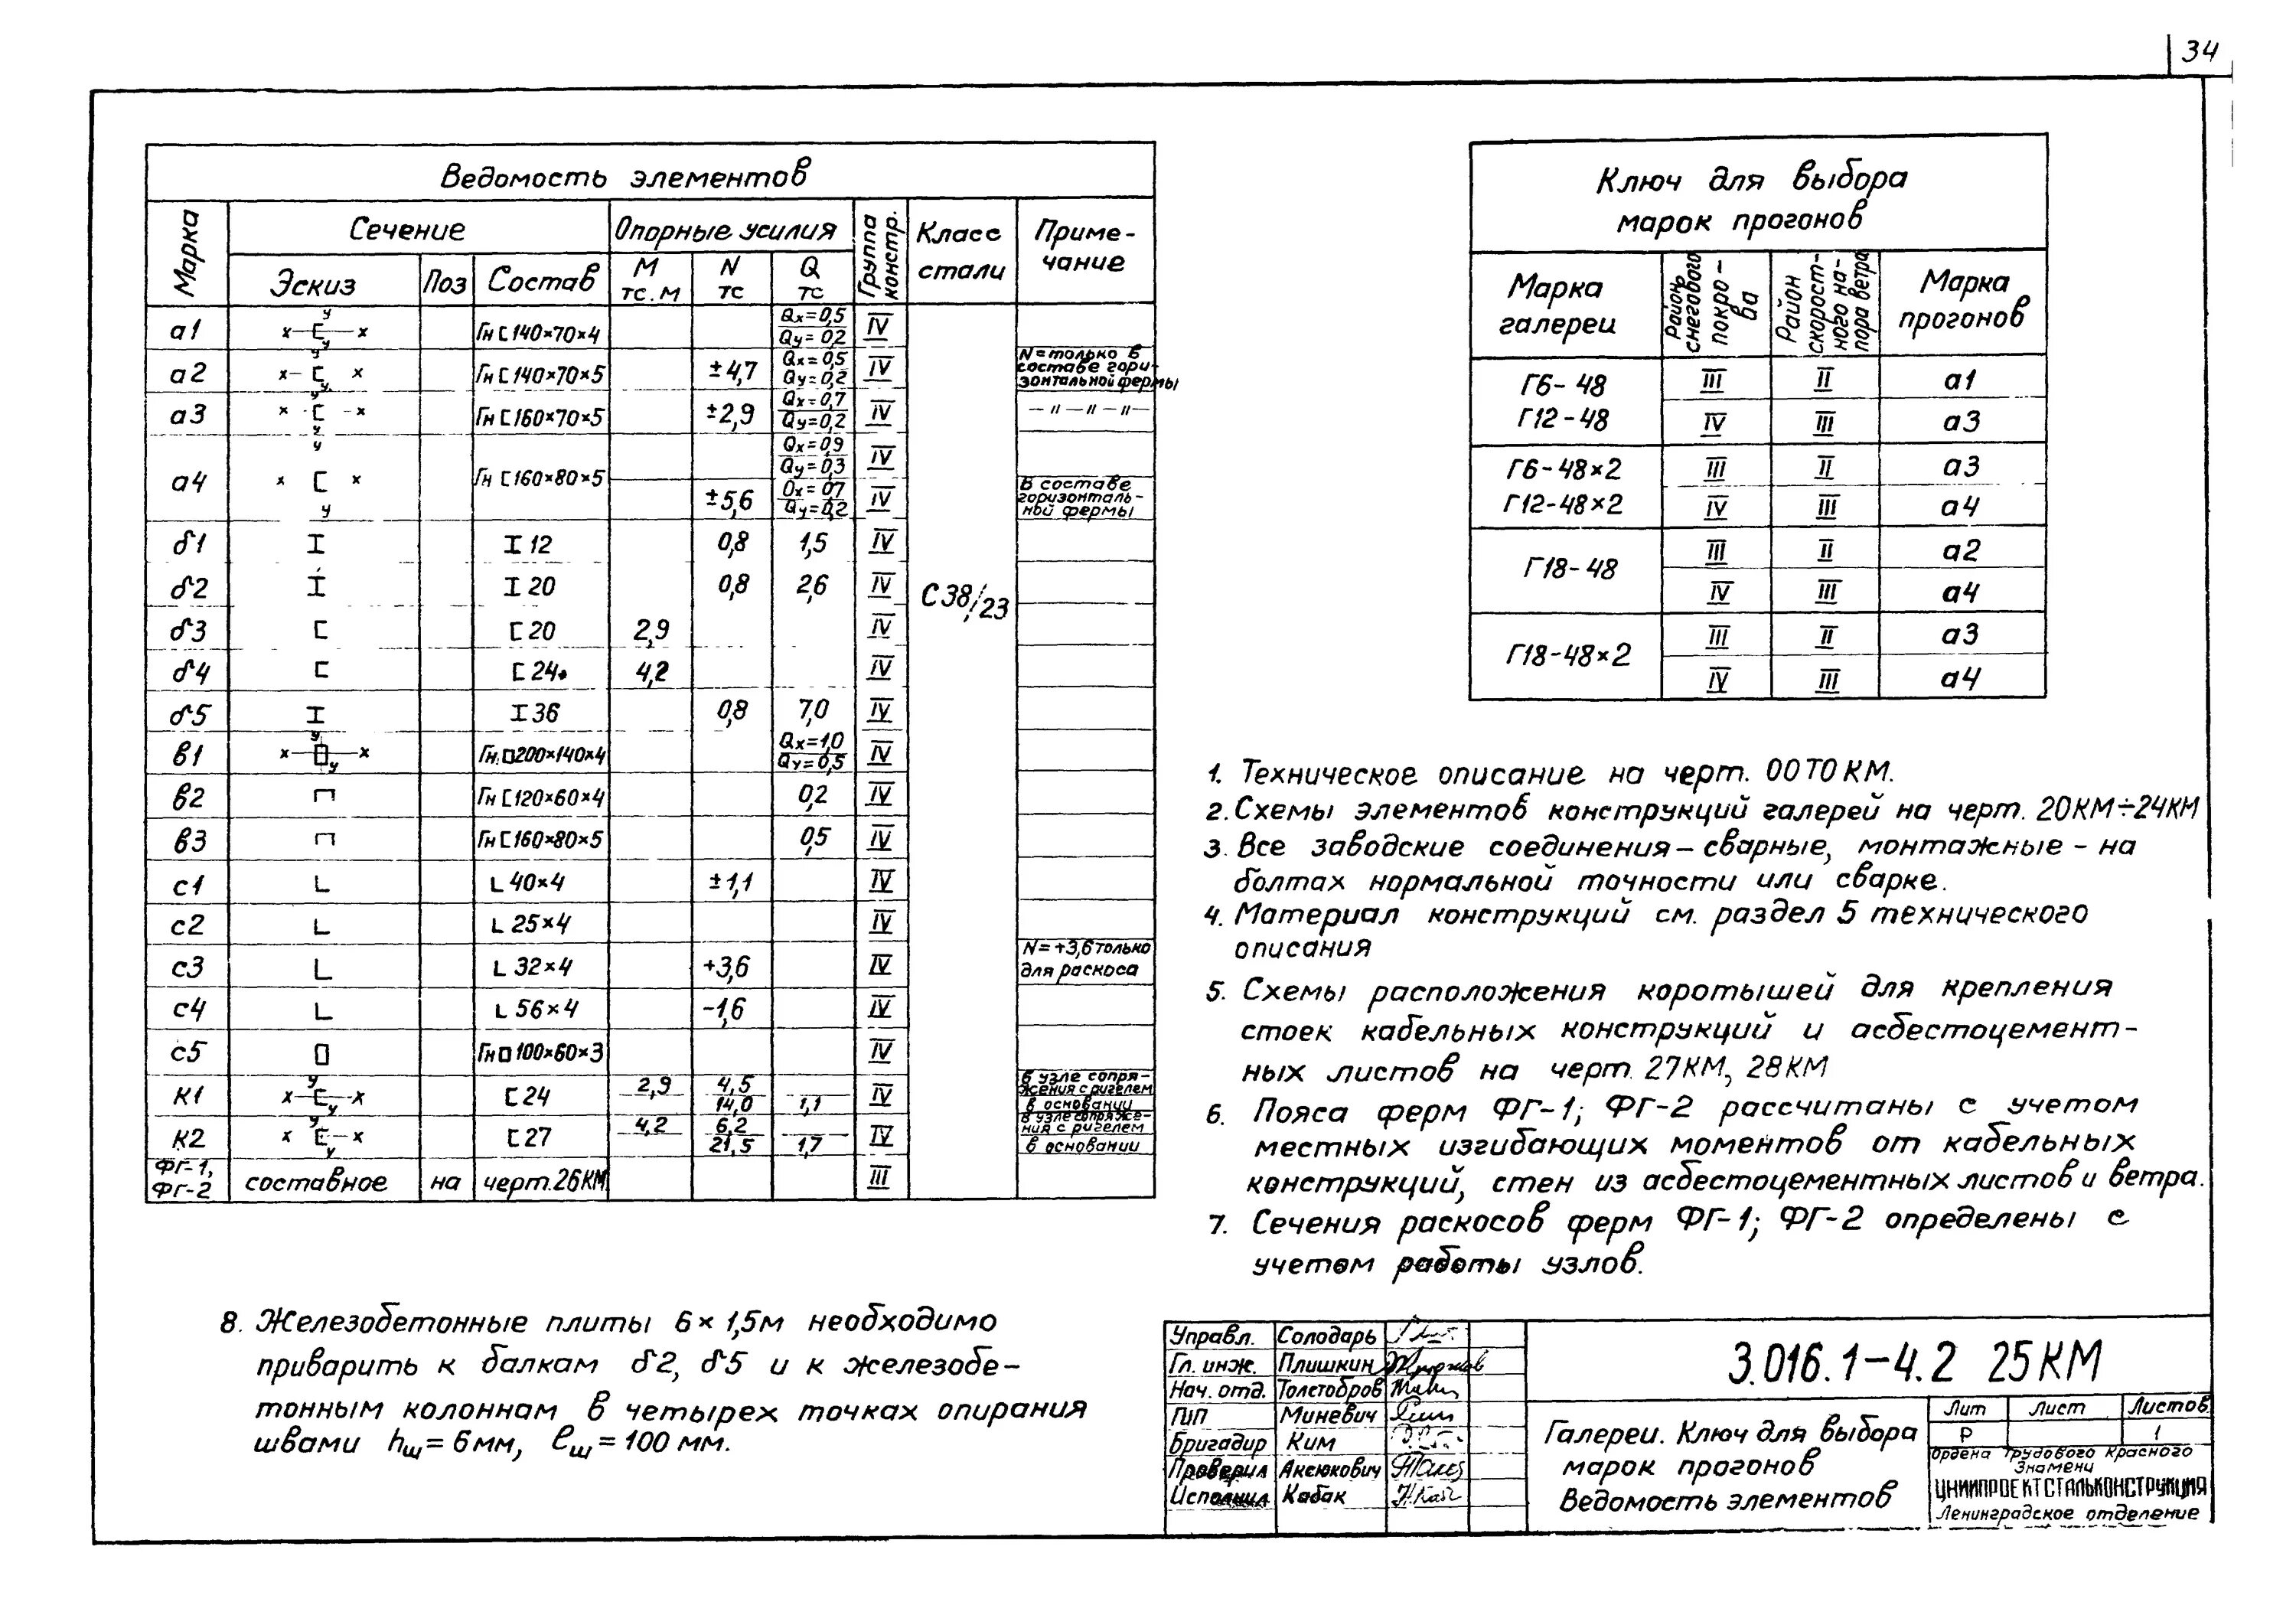 34
Ведомость элементов
Марка Сечение Опорные усилия Группа констр. Класс стали Примечание
Эскиз Поз Состав М тс.м N тс Q тс
а1 х х у у Гн [ 140×70×4 Qx=0,5 Qy=0,2 IV
а2 х х у у Гн [ 140×70×5 ±4,7 Qx=0,5 Qy=0,2 IV N=только в составе гори-зонтальной фермы
а3 х х у Гн [ 160×70×5 ±2,9 Qx=0,7 Qy=0,2 IV — // — // — // —
а4 х х у у Гн [ 160×80×5 Qx=0,9 Qy=0,3 IV
±5,6 Qx=0,7 Qy=0,2 IV В составе горизонталь-ной фермы
б1 I I 12 0,8 1,5 IV
б2 I I 20 0,8 2,6 IV С38/23
б3 [ [ 20 2,9 IV
б4 [ [ 24 4,2 IV
б5 I I 36 0,8 7,0 IV
в1 х х у у Гн □ 200×140×4 Qx=1,0 Qy=0,5 IV
в2 Гн [ 120×60×4 0,2 IV
в3 Гн [ 160×80×5 0,5 IV
с1 L L 40×4 ±1,1 IV
с2 L L 25×4 IV
с3 L L 32×4 +3,6 IV N=+3,6 только для раскоса
с4 L L 56×4 -1,6 IV
с5 □ Гн □ 100×60×3 IV
К1 х х у у [ 24 2,9 4,5 IV в узле сопря-жения с ригелем
14,0 1,1 в основании
К2 х х у у [ 27 4,2 6,2 IV в узле сопряже-ния с ригелем
21,5 1,7 в основании
ФГ-1, ФГ-2 составное на черт.26КМ III
Ключ для выбора
марок прогонов
Марка галереи Район снегового покро-ва Район скорост-ного на-пора ветра Марка прогонов
Г6-48 III II а1
Г12-48 IV III а3
Г6-48×2 III II а3
Г12-48×2 IV III а4
Г18-48 III II а2
IV III а4
Г18-48×2 III II а3
IV III а4
1. Техническое описание на черт. 00ТО КМ.
2. Схемы элементов конструкций галерей на черт. 20КМ÷24КМ
3. Все заводские соединения – сварные, монтажные – на
болтах нормальной точности или сварке.
4. Материал конструкций см. раздел 5 технического
описания
5. Схемы расположения коротышей для крепления
стоек кабельных конструкций и асбестоцемент-
ных листов на черт. 27КМ, 28КМ
6. Пояса ферм ФГ-1; ФГ-2 рассчитаны с учетом
местных изгибающих моментов от кабельных
конструкций, стен из асбестоцементных листов и ветра.
7. Сечения раскосов ферм ФГ-1; ФГ-2 определены с
учетом работы узлов.
8. Железобетонные плиты 6×1,5м необходимо
приварить к балкам б2, б5 и к железобе-
тонным колоннам в четырех точках опирания
швами hш=6мм, ℓш=100 мм.
Управл. Солодарь
Гл. инж. Плишкин
Нач. отд. Толстобров
ГИП Миневич
Бригадир Ким
Проверил Аксюкович
Исполнил Кабак
3.016.1-4.2 25КМ
Галереи. Ключ для выбора
марок прогонов
Ведомость элементов
Лит Лист Листов
Р 1
Ордена Трудового Красного
Знамени
ЦНИИПРОЕКТСТАЛЬКОНСТРУКЦИЯ
Ленинградское отделение